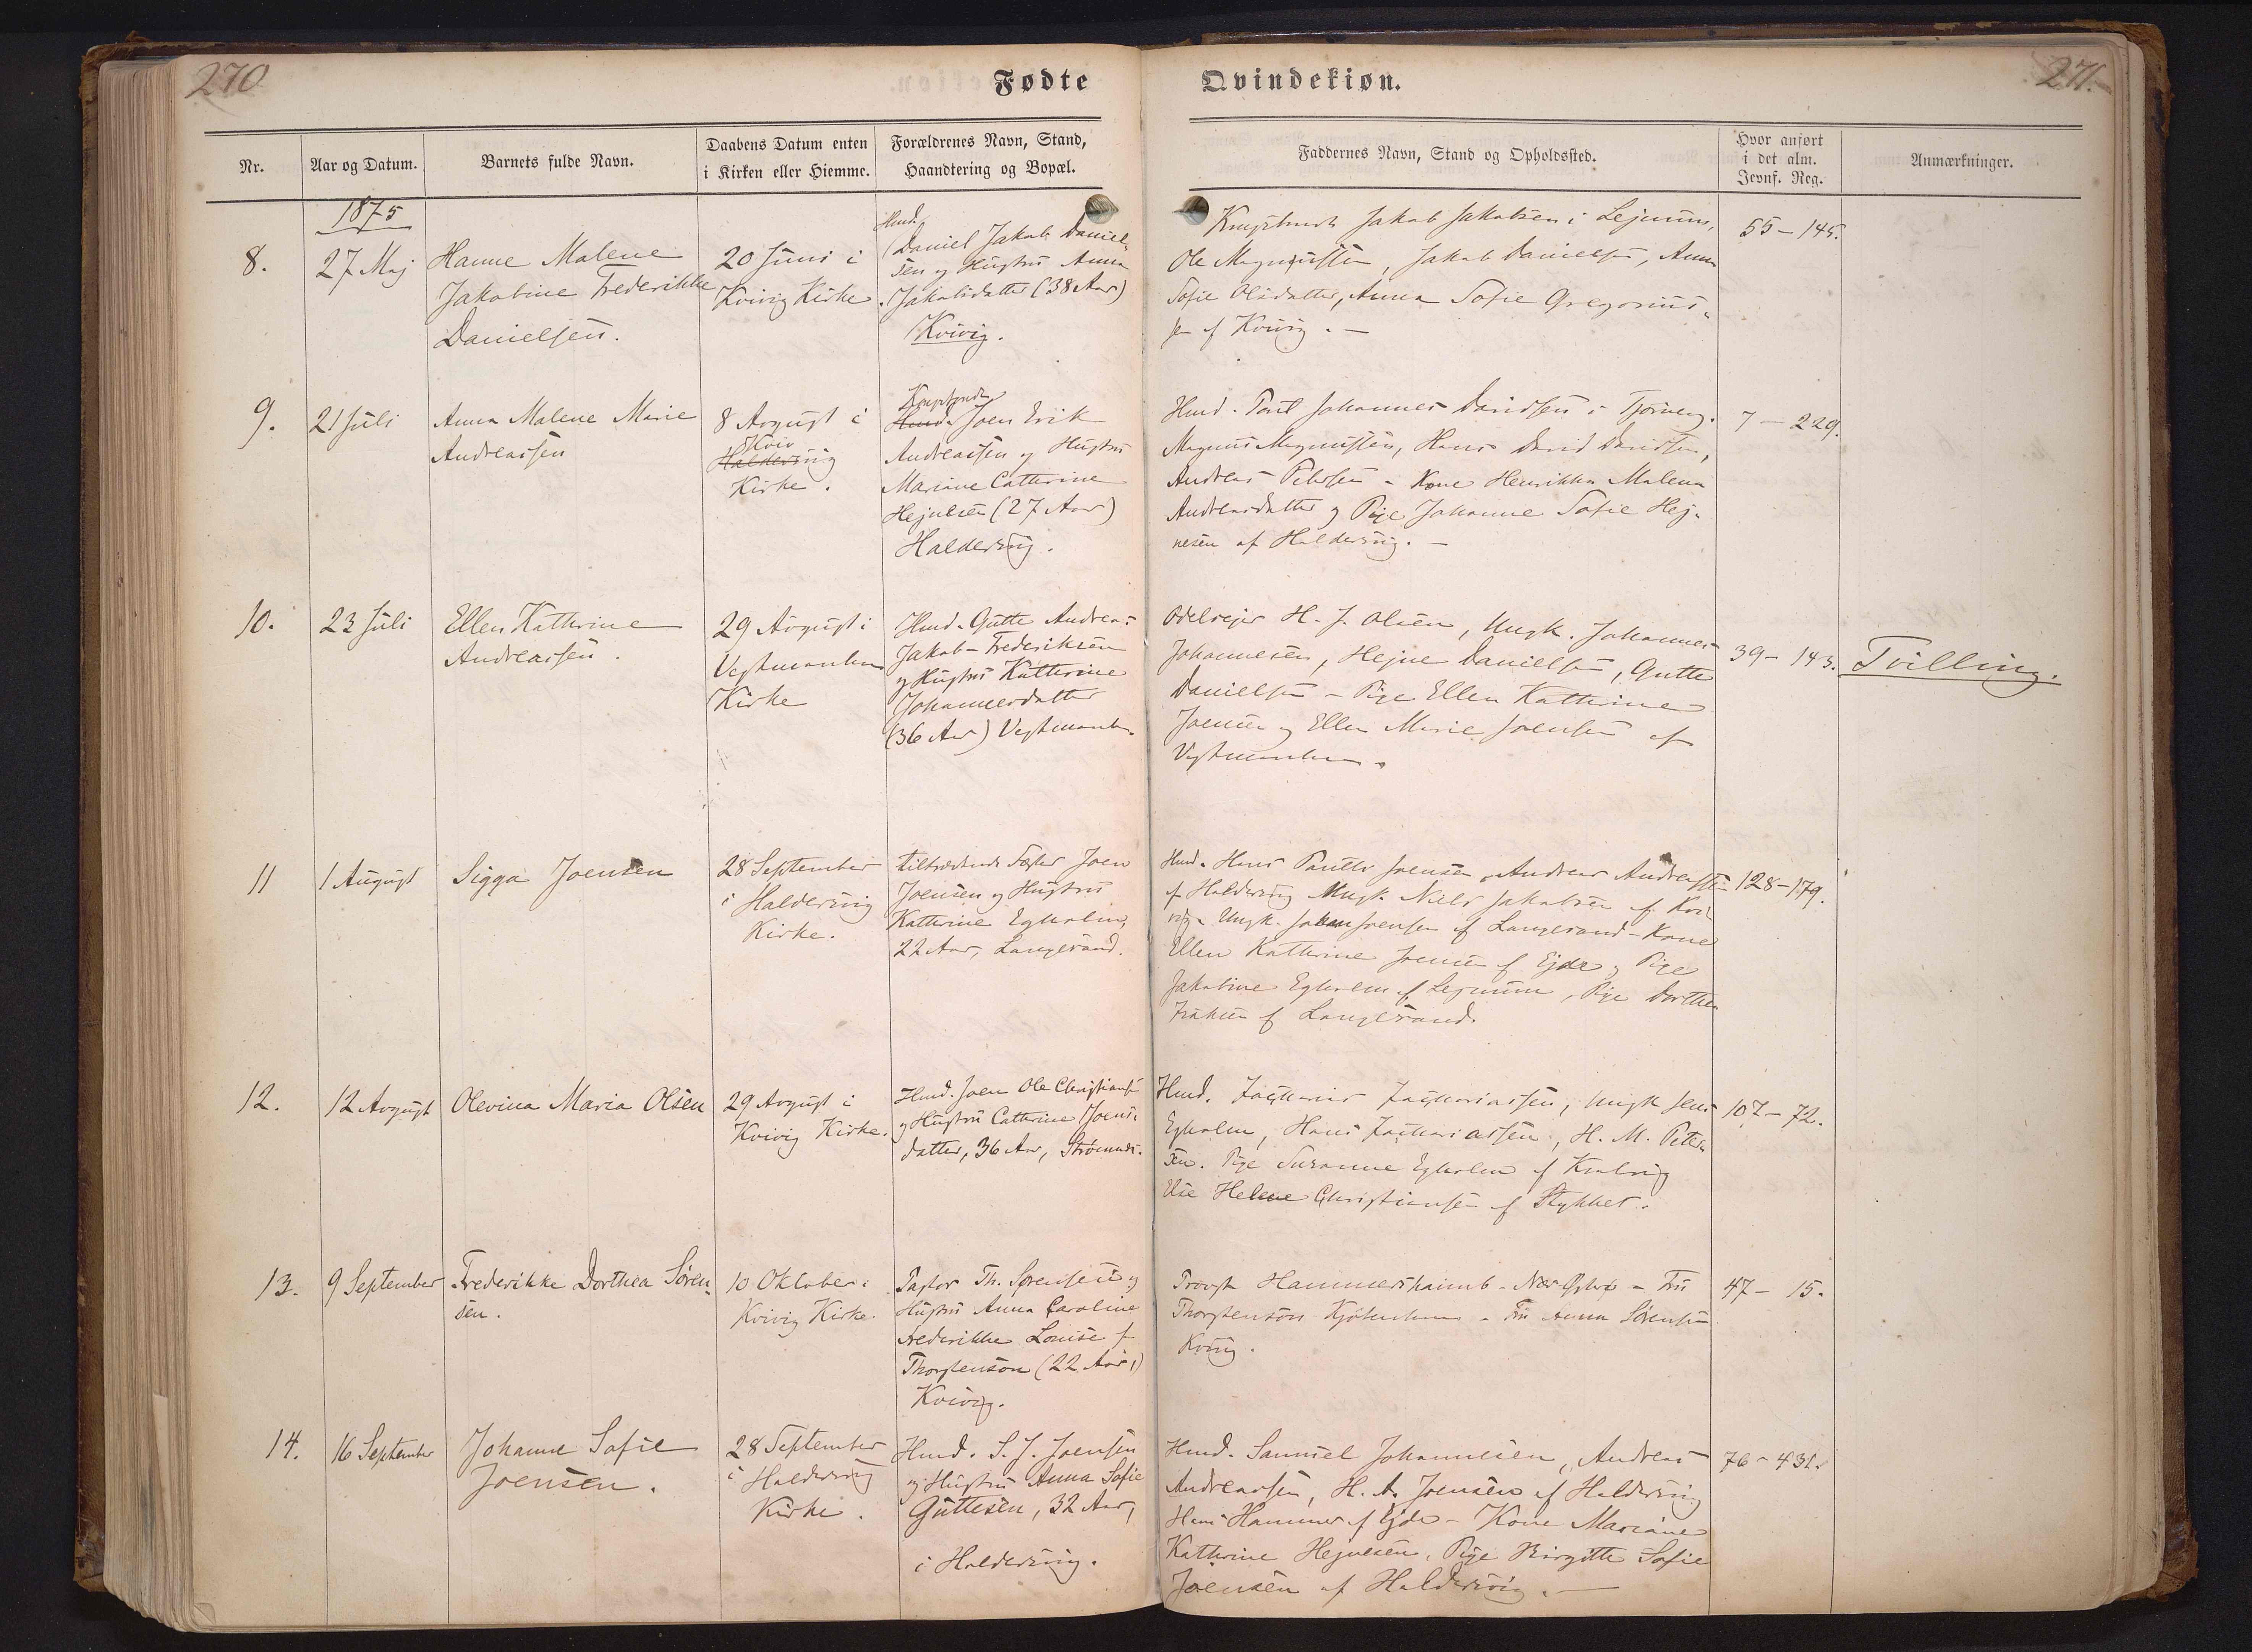 270
Fødte
Qvindekiøn.
271.
Nr.
Aar og Datum.
Barnets fulde Navn.
Daabens Datum enten
i Kirken eller Hiemme.
Forældrenes Navn, Stand,
Haandtering og Bopæl.
Faddernes Navn, Stand og Opholdssted.
Hvor anført
i det alm.
Jevnf. Reg.
Anmærkninger.
1875
8.
27 Maj
Hanne Malene
Jakobine Frederikke
Danielsen.
20 Juni i
Kvivig Kirke.
Hmd.
Daniel Jakob Daniel-
sen og Hustru Anna
Jakobsdatter (38 Aar)
Kvivig.
Jakob Jakobsen i Lejnum,
Ole Magnussen, Jakob Danielsen, Anna
Sofie Olsdatter, Anna Sofie Gregorius-
sen af Kvivig. —
55 – 145.
9.
21 Juli
Anna Malene Marie
Andreassen
8 Avgust i
Kviv
Haldersvig
Kirke.
Hmd. Joen Erik
Andreassen og Hustru
Mariane Cathrine
Hejnesen (27 Aar)
Haldersvig.
Hmd. Poul Johannes Davidsen i Tjørnevig.
Magnus Magnussen, Hans David Davidsen,
Andreas Petersen – Kone Henrikka Malena
Andreasdatter og Pige Johanne Sofie Hej-
nesen af Haldersvig. —
7 – 229.
10.
23 Juli
Ellen Kathrine
Andreassen.
29 Avgust i
Vestmanhavn
Kirke
Hmd. Gutte Andreas
Jakob Frederiksen
og Hustru Kathrine
Johannesdatter
(36 Aar) Vestmanh.
Odelsejer H. J. Olsen, Ungk. Johannes
Johannesen, Hejne Danielsen, Gutte
Danielsen – Pige Ellen Kathrine
Joensen og Ellen Marie Joensen af
Vestmanhavn.
39 – 143.
Tvilling.
11
1 August
Sigga Joensen
28 September
i Haldersvig
Kirke.
tiltrædende Fæster Joen
Joensen og Hustru
Kathrine Egholm,
22 Aar, Langesand.
Hmd. Hans Paulli Joensen, Andreas Andreassen
af Haldersvig Ungk. Niels Jakobsen af Kvi-
vig. Ungk. Johan Joensen af Langesand – Kone
Ellen Kathrine Joensen af Ejde og Pige
Jakobine Egholm af Lejnum, Pige Dorthea
af Langesand.
128 – 179.
12.
12 Avgust
Olevina Maria Olsen
29 Avgust i
Kvivig Kirke.
Hmd. Joen Ole Christiansen
og Hustru Cathrine Joens-
datter, 36 Aar, Strømnæs.
Hmd. Zacharias Zachariassen, Ungk Jens
Egholm, Hans Zachariassen, H. M. Peter-
sen. Pige Susanne Egholm af Kvalvig
Else Helene Christiansen af Stykket.
107 – 72.
13.
9 September
Frederikke Dorthea Søren-
sen.
10 Oktober i
Kvivig Kirke.
Pastor Th. Sørensen og
Hustru Anna Caroline
Frederikke Louise f.
Thorstenson (22 Aar,)
Kvivig.
Provst Hammershaimb – Næs Østerø – Fru
Thorstenson Kjøbenhavn – Fru Anna Sørensen
Kvivig.
47 – 15.
14.
16 September
Johanne Sofie
Joensen.
28 September
i Haldersvig
Kirke.
Hmd. S. J. Joensen
og Hustru Anna Sofie
Guttesen, 32 Aar,
i Haldersvig.
Hmd. Samuel Johannesen, Andreas
Andreassen, H. A. Joensen af Haldersvig
Hans Hammer af Ejde – Kone Mariane
Kathrine Hejnesen, Pige Birgitte Sofie
Joensen af Haldersvig. —
76 – 431.